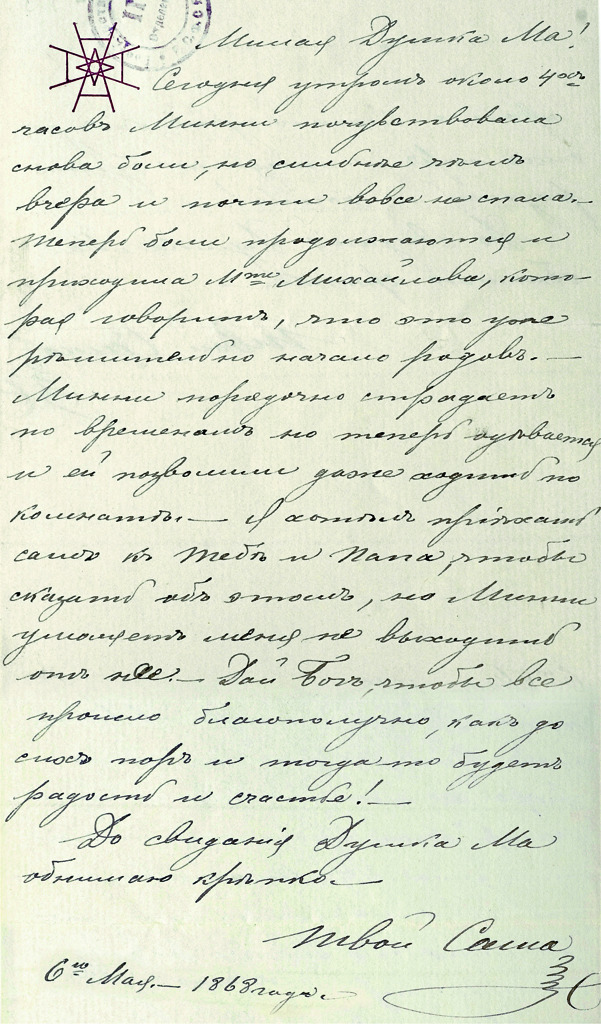 Милая Душка Ма!
Сегодня утромъ около 4хъ
часовъ Минни почувствовала
снова боли, но сильнѣе чѣмъ
вчера и почти вовсе не спала.—
Теперь боли продолжаются и
приходила Мme Михайлова, кото-
рая говоритъ, что это уже
рѣшительно начало родовъ.—
Минни порядочно страдаетъ
по временамъ но теперь одѣвается
и ей позволили даже ходить по
комнатѣ.— Я хотѣлъ пріѣхать
самъ къ Тебѣ и Папа, чтобы
сказать объ этомъ, но Минни
умоляетъ меня не выходить
отъ нее.— Дай Богъ, чтобы все
прошло благополучно, какъ до
сихъ поръ и тогда то будетъ
радость и счастье!—
До свиданія Душка Ма
обнимаю крѣпко.—
Твой Саша
6го Мая.— 1868 года.